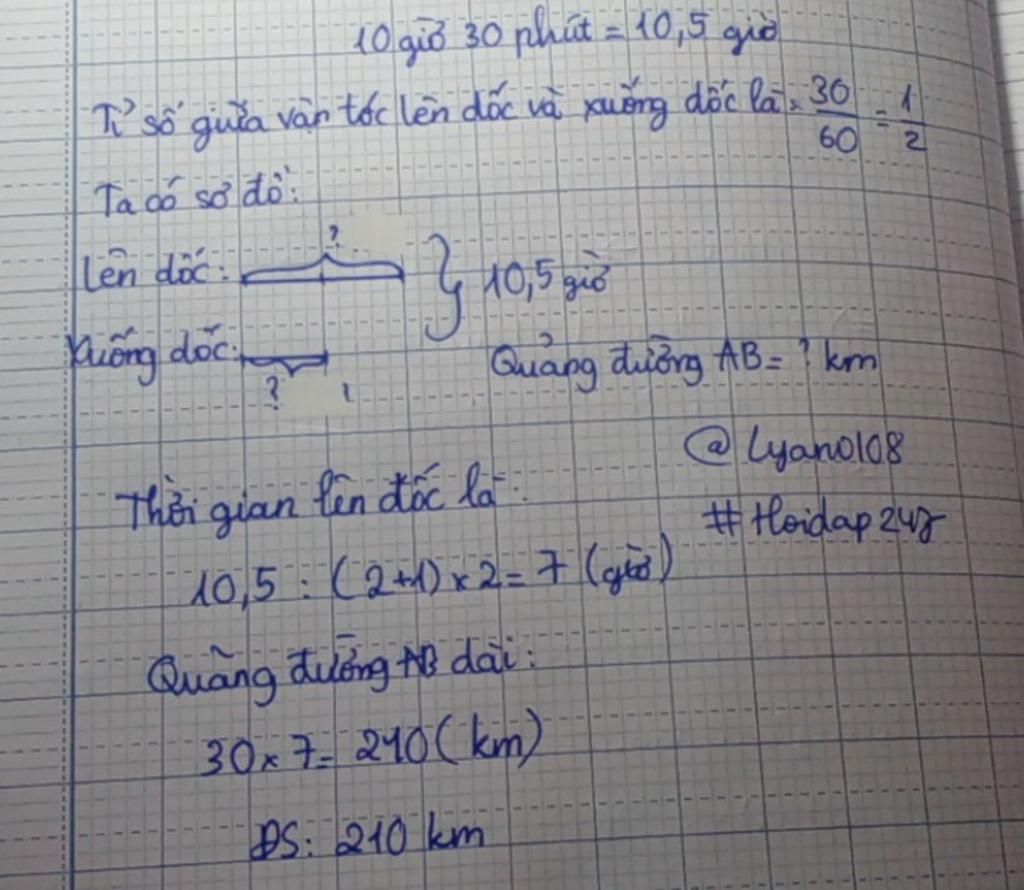 10 giờ 30 phút = 10,5 giờ
Tỉ số giữa vận tốc lên dốc và xuống dốc là: 30/60 = 1/2
Ta có sơ đồ:
?
Lên dốc: 10,5 giờ
Xuống dốc: Quảng đường AB = ? km
?
@ Lyano108
Thời gian lên dốc là:
# Hoidap247
10,5 : (2+1) x 2 = 7 (giờ)
Quãng đường AB dài:
30 x 7 = 210 (km)
ĐS: 210 km